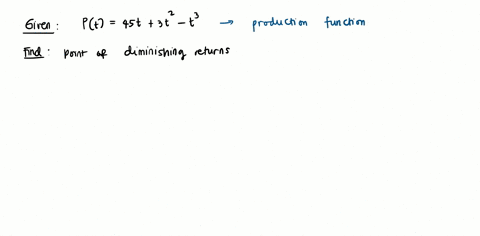 Given: P(t) = 45t + 3t² - t³ → production function
Find: point of diminishing returns